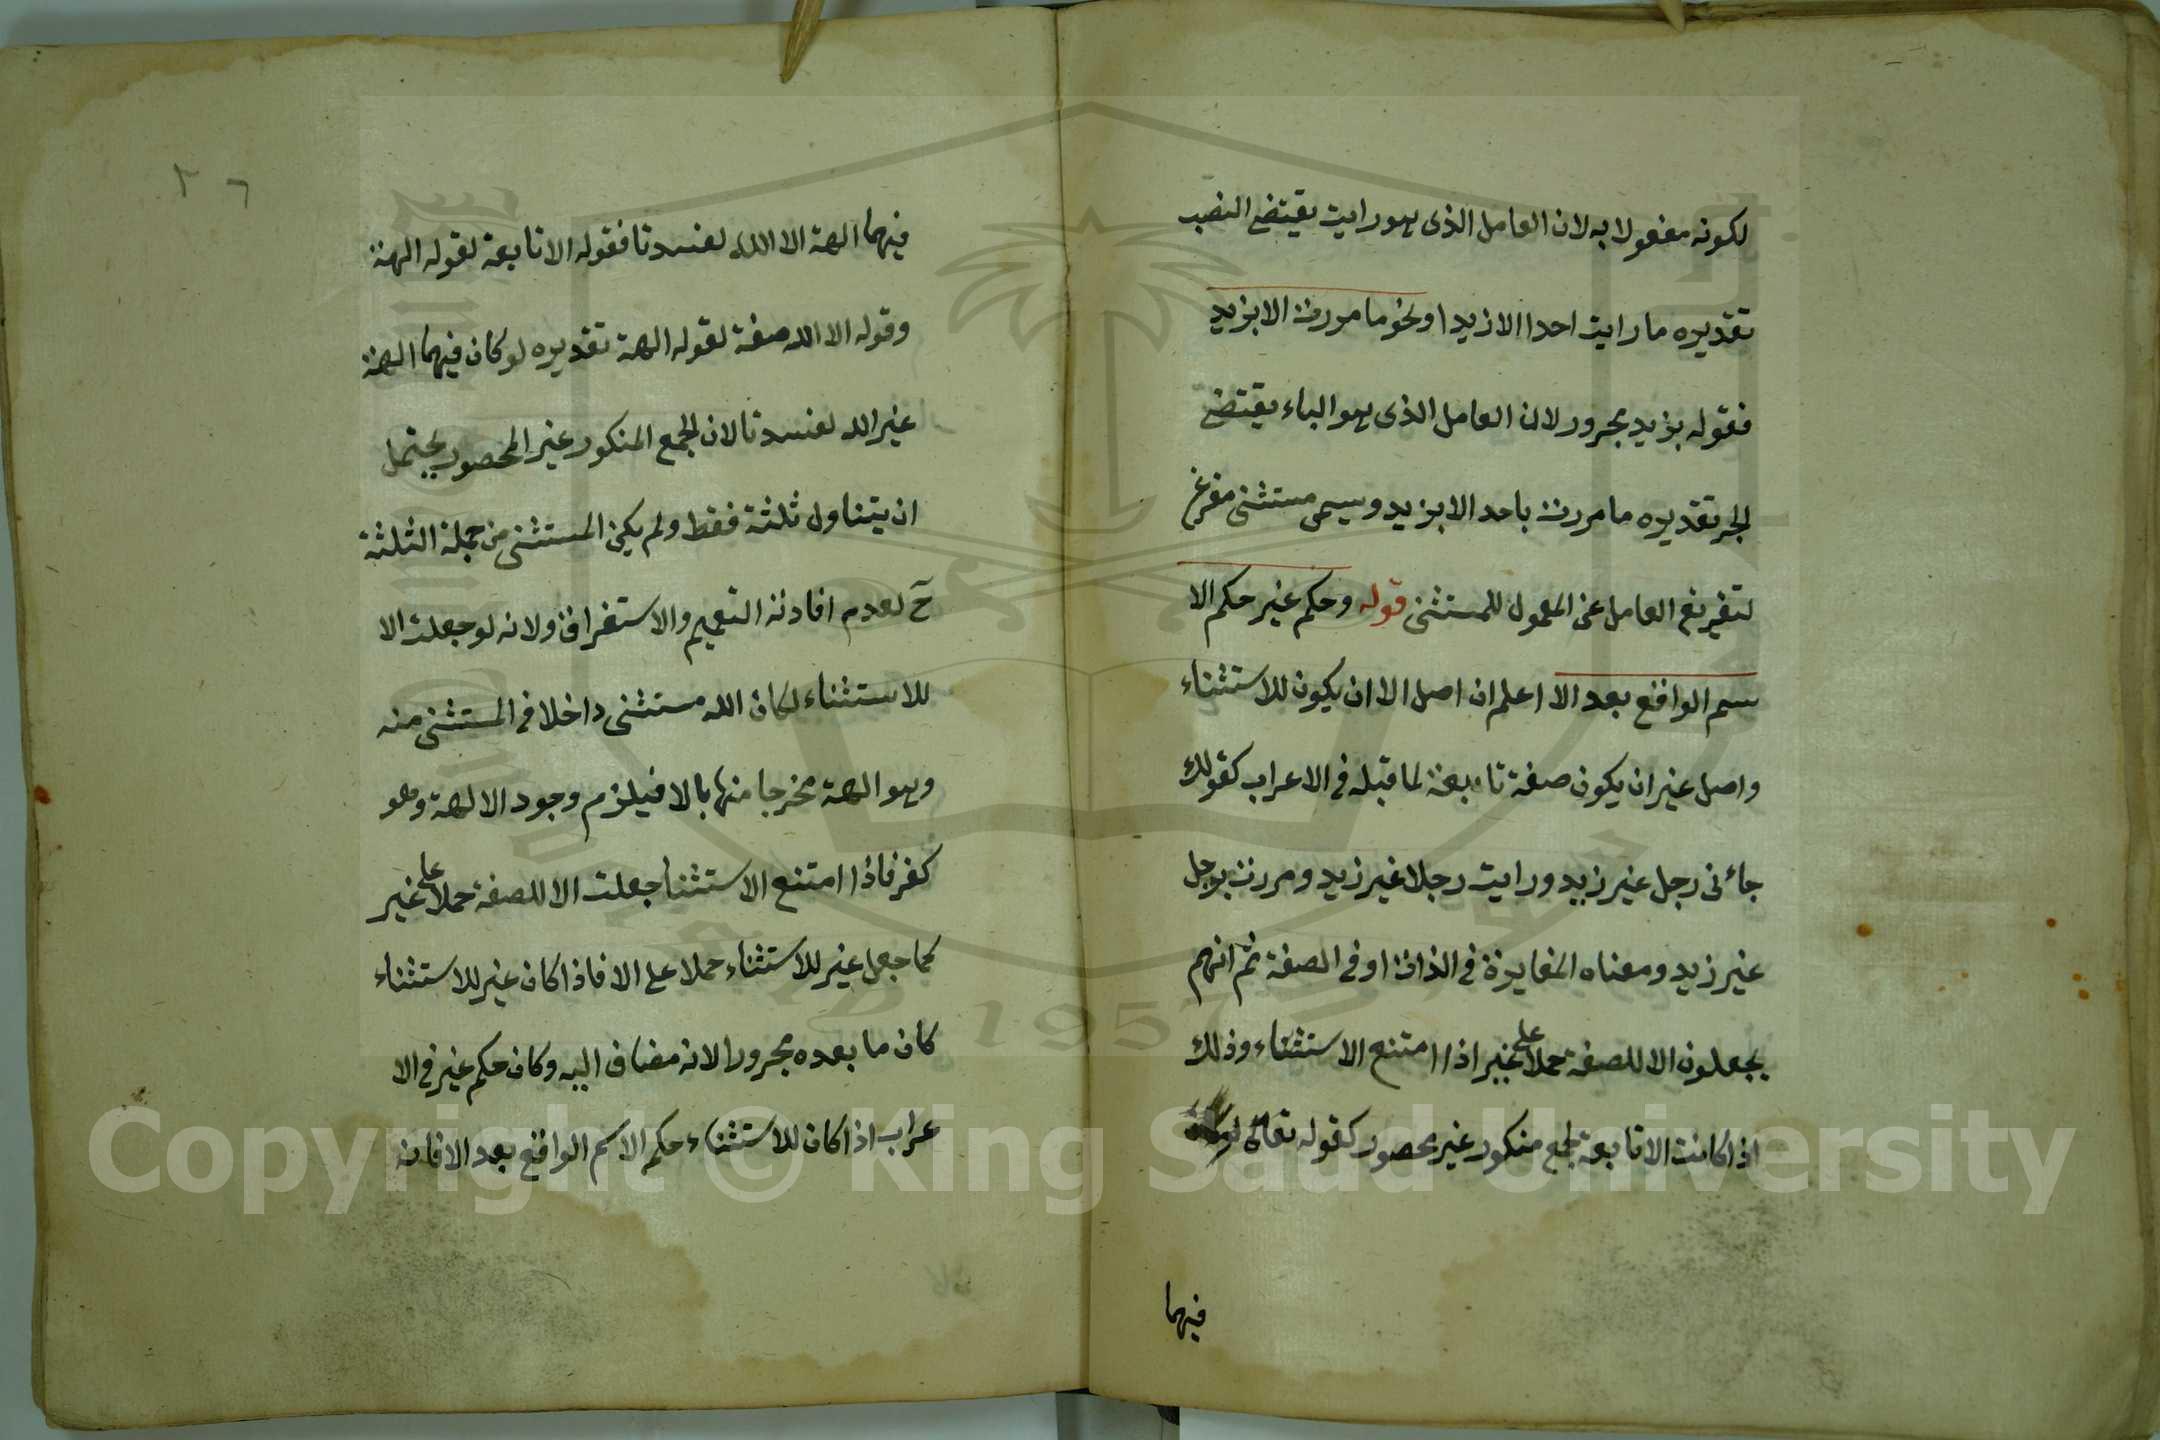 لكونه مفعولا به لان العامل الذى هو رايت يقتضى النصب
تقديره ما رايت احدا الا زيدا ونحو ما مررت الا بزيد
فقوله بزيد مجرور لان العامل الذى هو الباء يقتضى
الجر تقديره ما مررت باحد الا بزيد ويسمى مستثنى مفرغ
لتفريغ العامل عن المعمول للمستثنى قوله وحكم غير حكم الا
سم الواقع بعد الا اعلم ان اصل الا ان يكون للاستثناء
واصل غير ان يكون صفة تابعة لما قبله فى الاعراب كقولك
جاءنى رجل غير زيد ورايت رجلا غير زيد ومررت برجل
غير زيد ومعناه المغايرة فى الذات او فى الصفة ثم انهم
يجعلون الا للصفة حملا على غير اذا امتنع الاستثناء وذلك
اذا كانت الا تابعة لجمع منكور غير محصور كقوله تعالى لو كان
فيهما
٣٦
فيهما الهة الا الله لفسدتا فقوله الا تابعة لقوله الهة
وقوله الا الله صفة لقوله الهة تقديره لو كان فيهما الهة
غير الله لفسدتا لان الجمع المنكور غير المحصور يحتمل
ان يتناول ثلثة فقط ولم يكن المستثنى من جملة الثلثة
ح لعدم افادته التعميم والاستغراق ولانه لو جعلت الا
للاستثناء لكان الله مستثنى داخلا فى المستثنى منه
وهو الهة مخرجا منها بالا فيلزم وجود الالهة وهو
كفر فاذا امتنع الاستثنا جعلت الا للصفة حملا على غير
كما جعل غير للاستثناء حملا على الا فاذا كان غير للاستثناء
كان ما بعده مجرورا لانه مضاف اليه وكان حكم غير فى الا
عراب اذا كان للاستثناء حكم الاسم الواقع بعد الا فانه
Copyright © King Saud University
1957